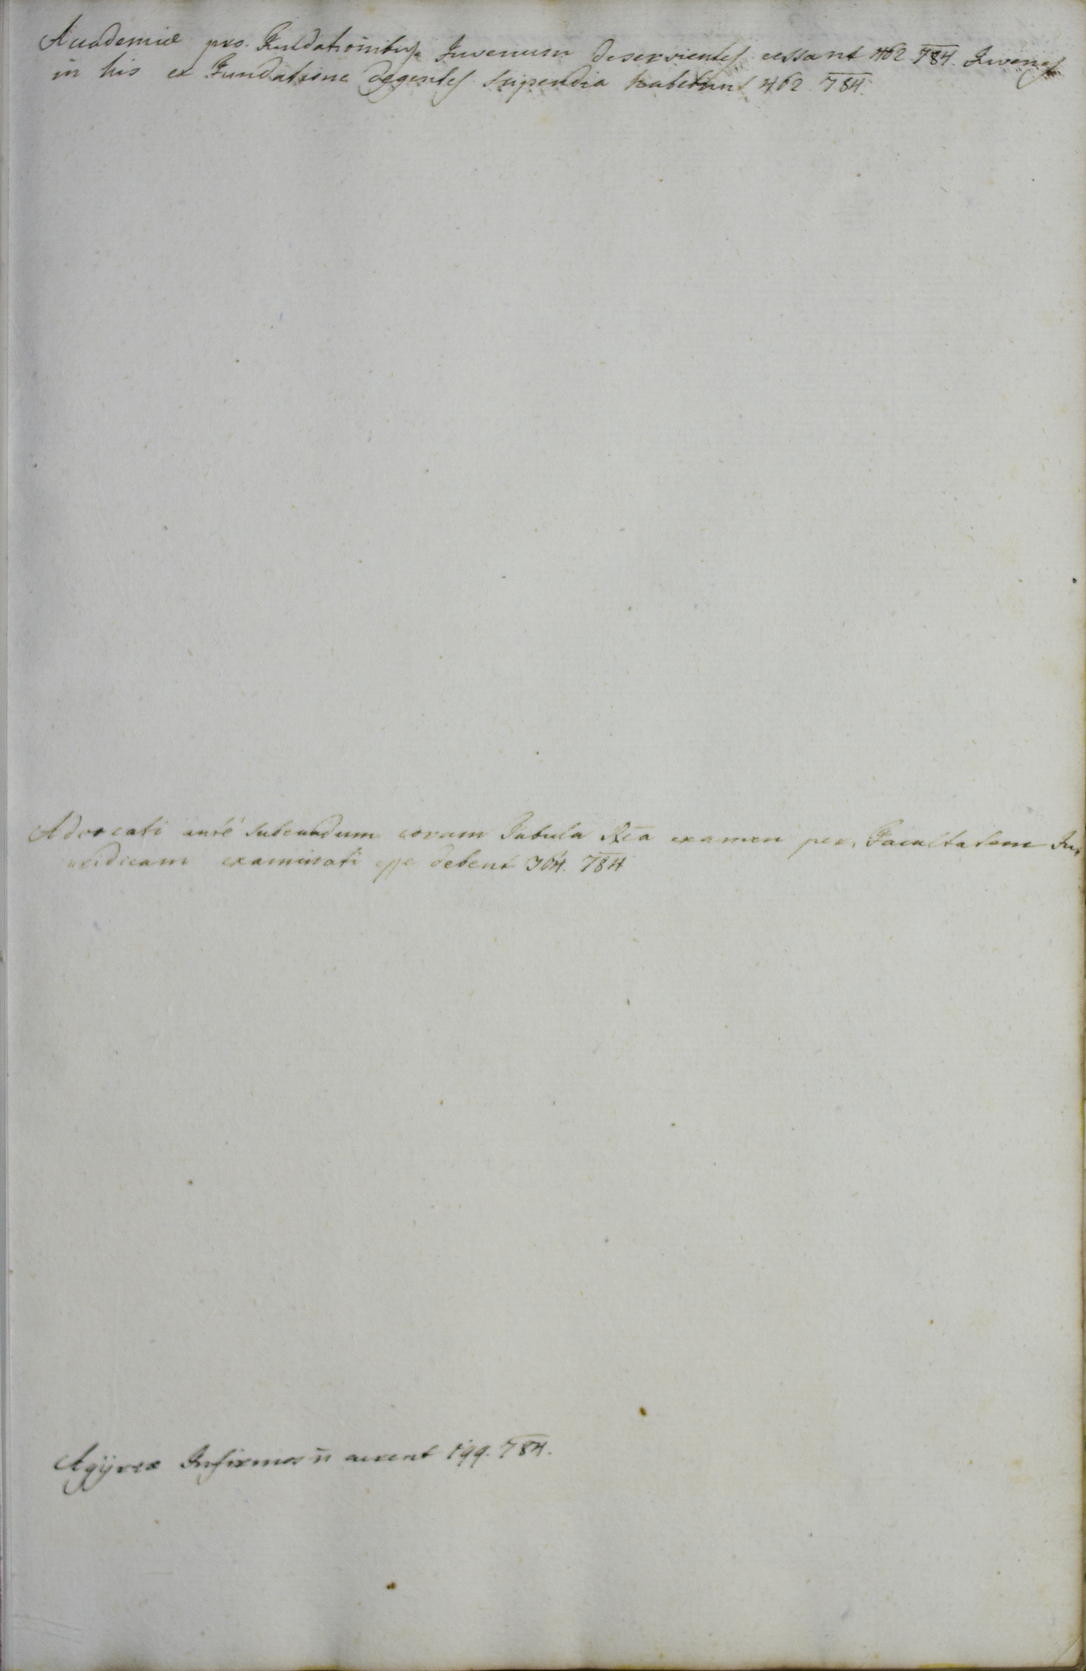 Academiæ pro Fundationibus Juvenum deservientes cessant 462 784. Juvenes
in his ex Fundatione degentes stipendia habebunt 462 784.
Advocati antè subeundum coram Tabula Rēa examen per Facultatem Ju-
ridicam examinati esse debent 304. 784
Agÿrtæ Infirmos n̄ curent 199. 784.